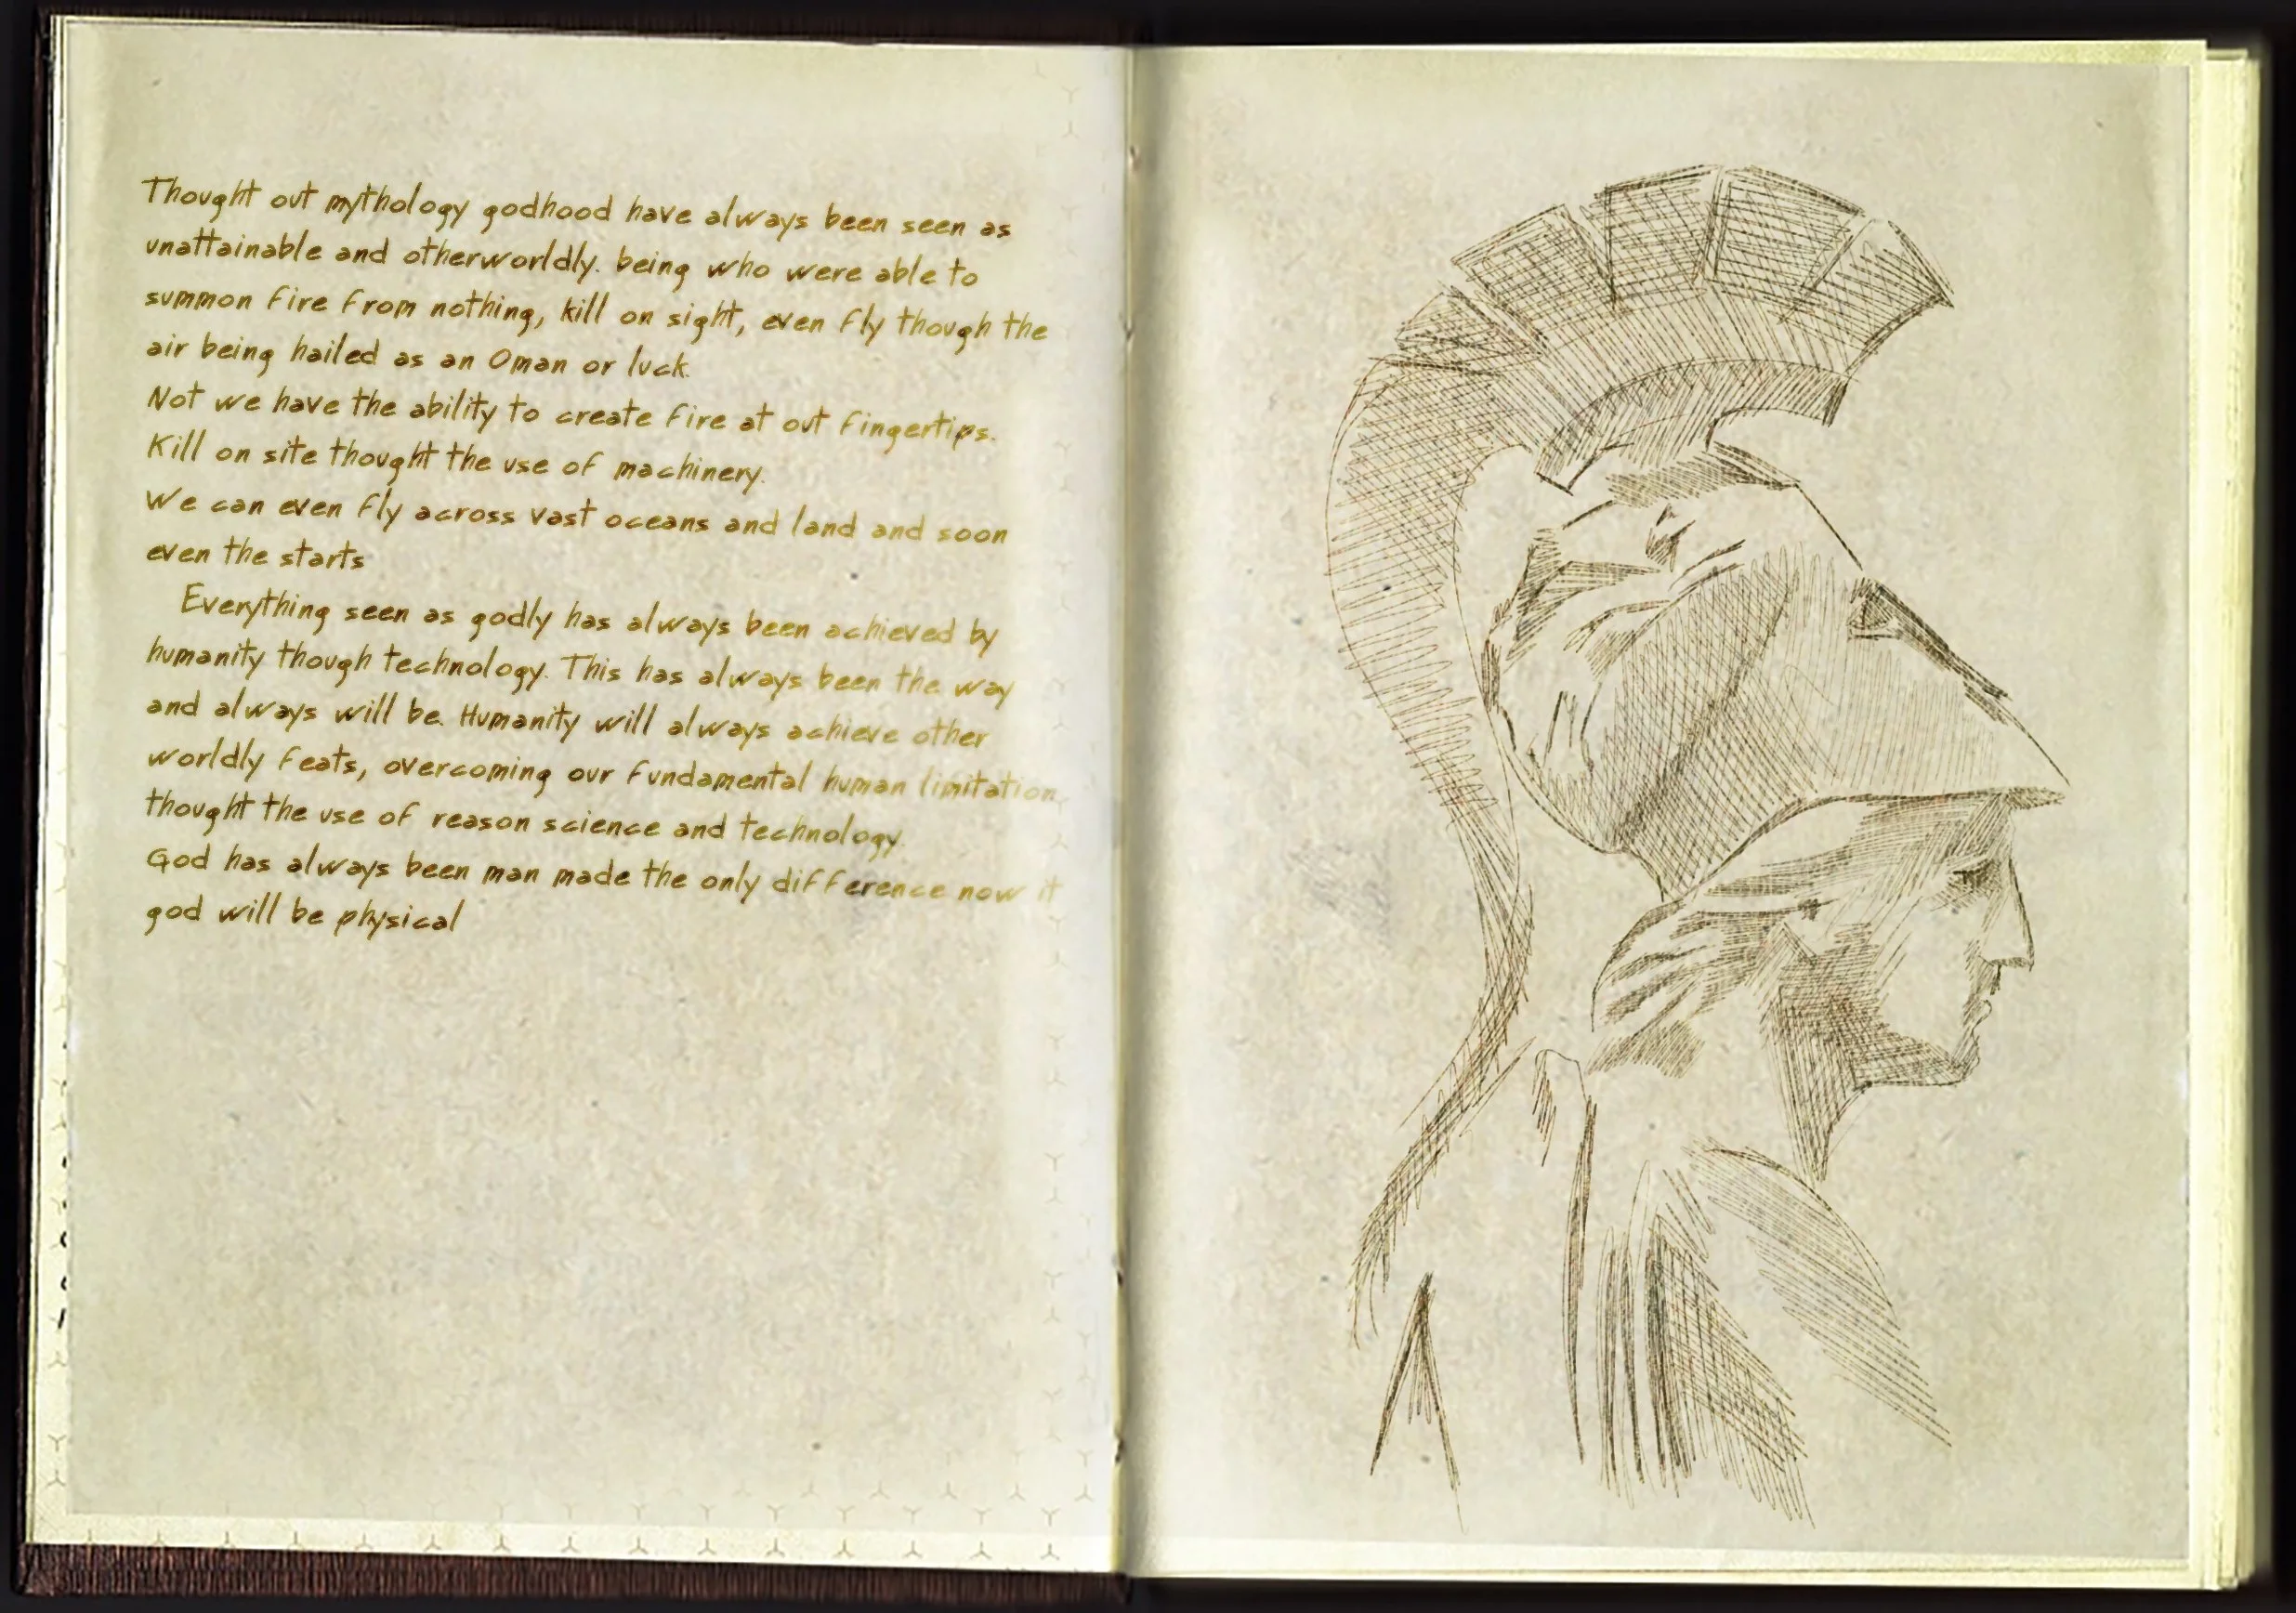 Thought out mythology godhood have always been seen as
unattainable and otherworldly. being who were able to
summon fire from nothing, kill on sight, even fly though the
air being hailed as an Oman or luck.
Not we have the ability to create fire at out fingertips.
Kill on site thought the use of machinery.
We can even fly across vast oceans and land and soon
even the starts
Everything seen as godly has always been achieved by
humanity though technology. This has always been the way
and always will be. Humanity will always achieve other
worldly feats, overcoming our fundamental human limitation,
thought the use of reason science and technology.
God has always been man made the only difference now it
god will be physical